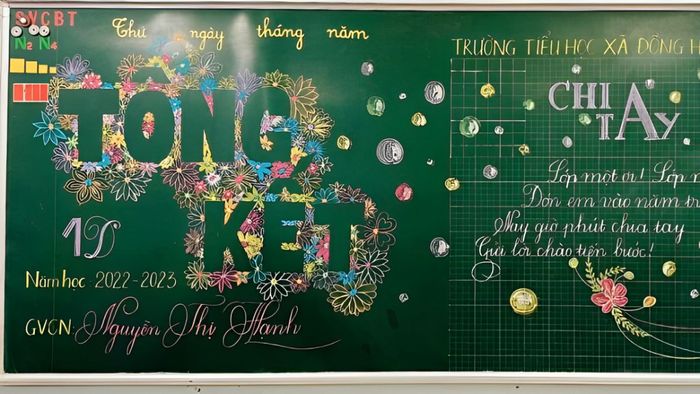 SVCBT
N2 N4
Thứ ngày tháng năm
TỔNG
KẾT
1D
Năm học 2022-2023
GVCN: Nguyễn Thị Hạnh
TRƯỜNG TIỂU HỌC XÃ ĐỒNG H
CHI
TAY
Lớp một ơi! Lớp m
Đón em vào năm tr
Nay giờ phút chia tay
Gửi lời chào tiến bước!